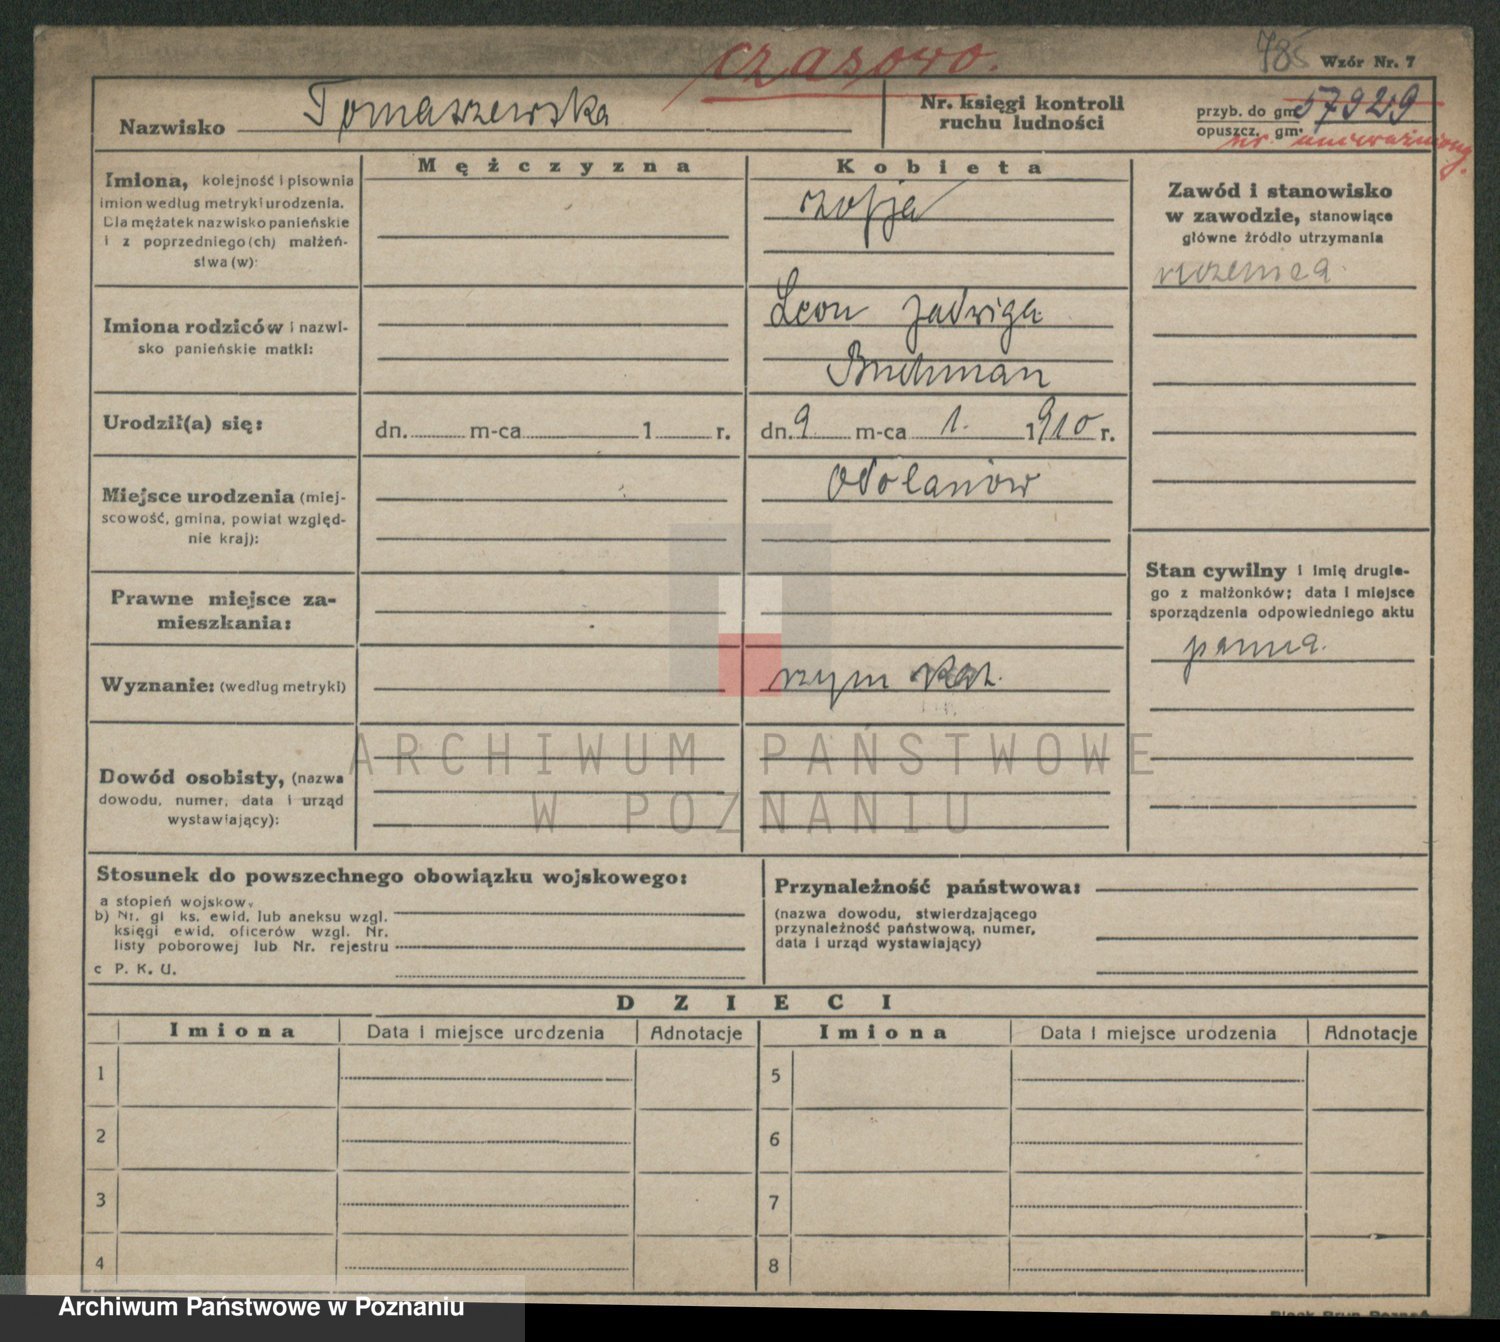 czasowo.
785 Wzór Nr. 7
Nazwisko Tomaszewska
Nr. księgi kontroli
ruchu ludności
przyb. do gm. 57929
opuszcz. gm.
nr. unieważniony.
Mężczyzna Kobieta
Imiona, kolejność i pisownia
imion według metryki urodzenia.
Dla mężatek nazwisko panieńskie
i z poprzedniego(ch) małżeń-
stwa(w):
Zofja
Zawód i stanowisko
w zawodzie, stanowiące
główne źródło utrzymania
uczenica.
Imiona rodziców i nazwi-
sko panieńskie matki:
Leon Jadwiga
Buchman
Urodził(a) się:
dn. m-ca 1 r.
dn. 9 m-ca 1. 1910 r.
Miejsce urodzenia (miej-
scowość, gmina, powiat względ-
nie kraj):
Odolanów
Stan cywilny i imię drugie-
go z małżonków; data i miejsce
sporządzenia odpowiedniego aktu
panna.
Prawne miejsce za-
mieszkania:
Wyznanie: (według metryki)
rzym kat.
Dowód osobisty, (nazwa
dowodu, numer, data i urząd
wystawiający):
ARCHIWUM PAŃSTWOWE
W POZNANIU
Stosunek do powszechnego obowiązku wojskowego:
a stopień wojskow.
b) Nr. gł ks. ewid. lub aneksu wzgl.
księgi ewid. oficerów wzgl. Nr.
listy poborowej lub Nr. rejestru
c P. K. U.
Przynależność państwowa:
(nazwa dowodu, stwierdzającego
przynależność państwową, numer,
data i urząd wystawiający)
DZIECI
Imiona Data i miejsce urodzenia Adnotacje Imiona Data i miejsce urodzenia Adnotacje
1 5
2 6
3 7
4 8
Archiwum Państwowe w Poznaniu